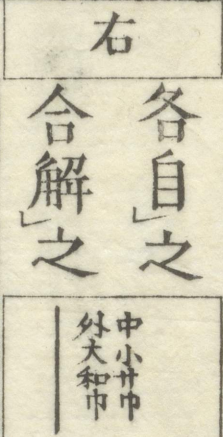 右
各自」之
合解」之
中小廾巾
外大和巾